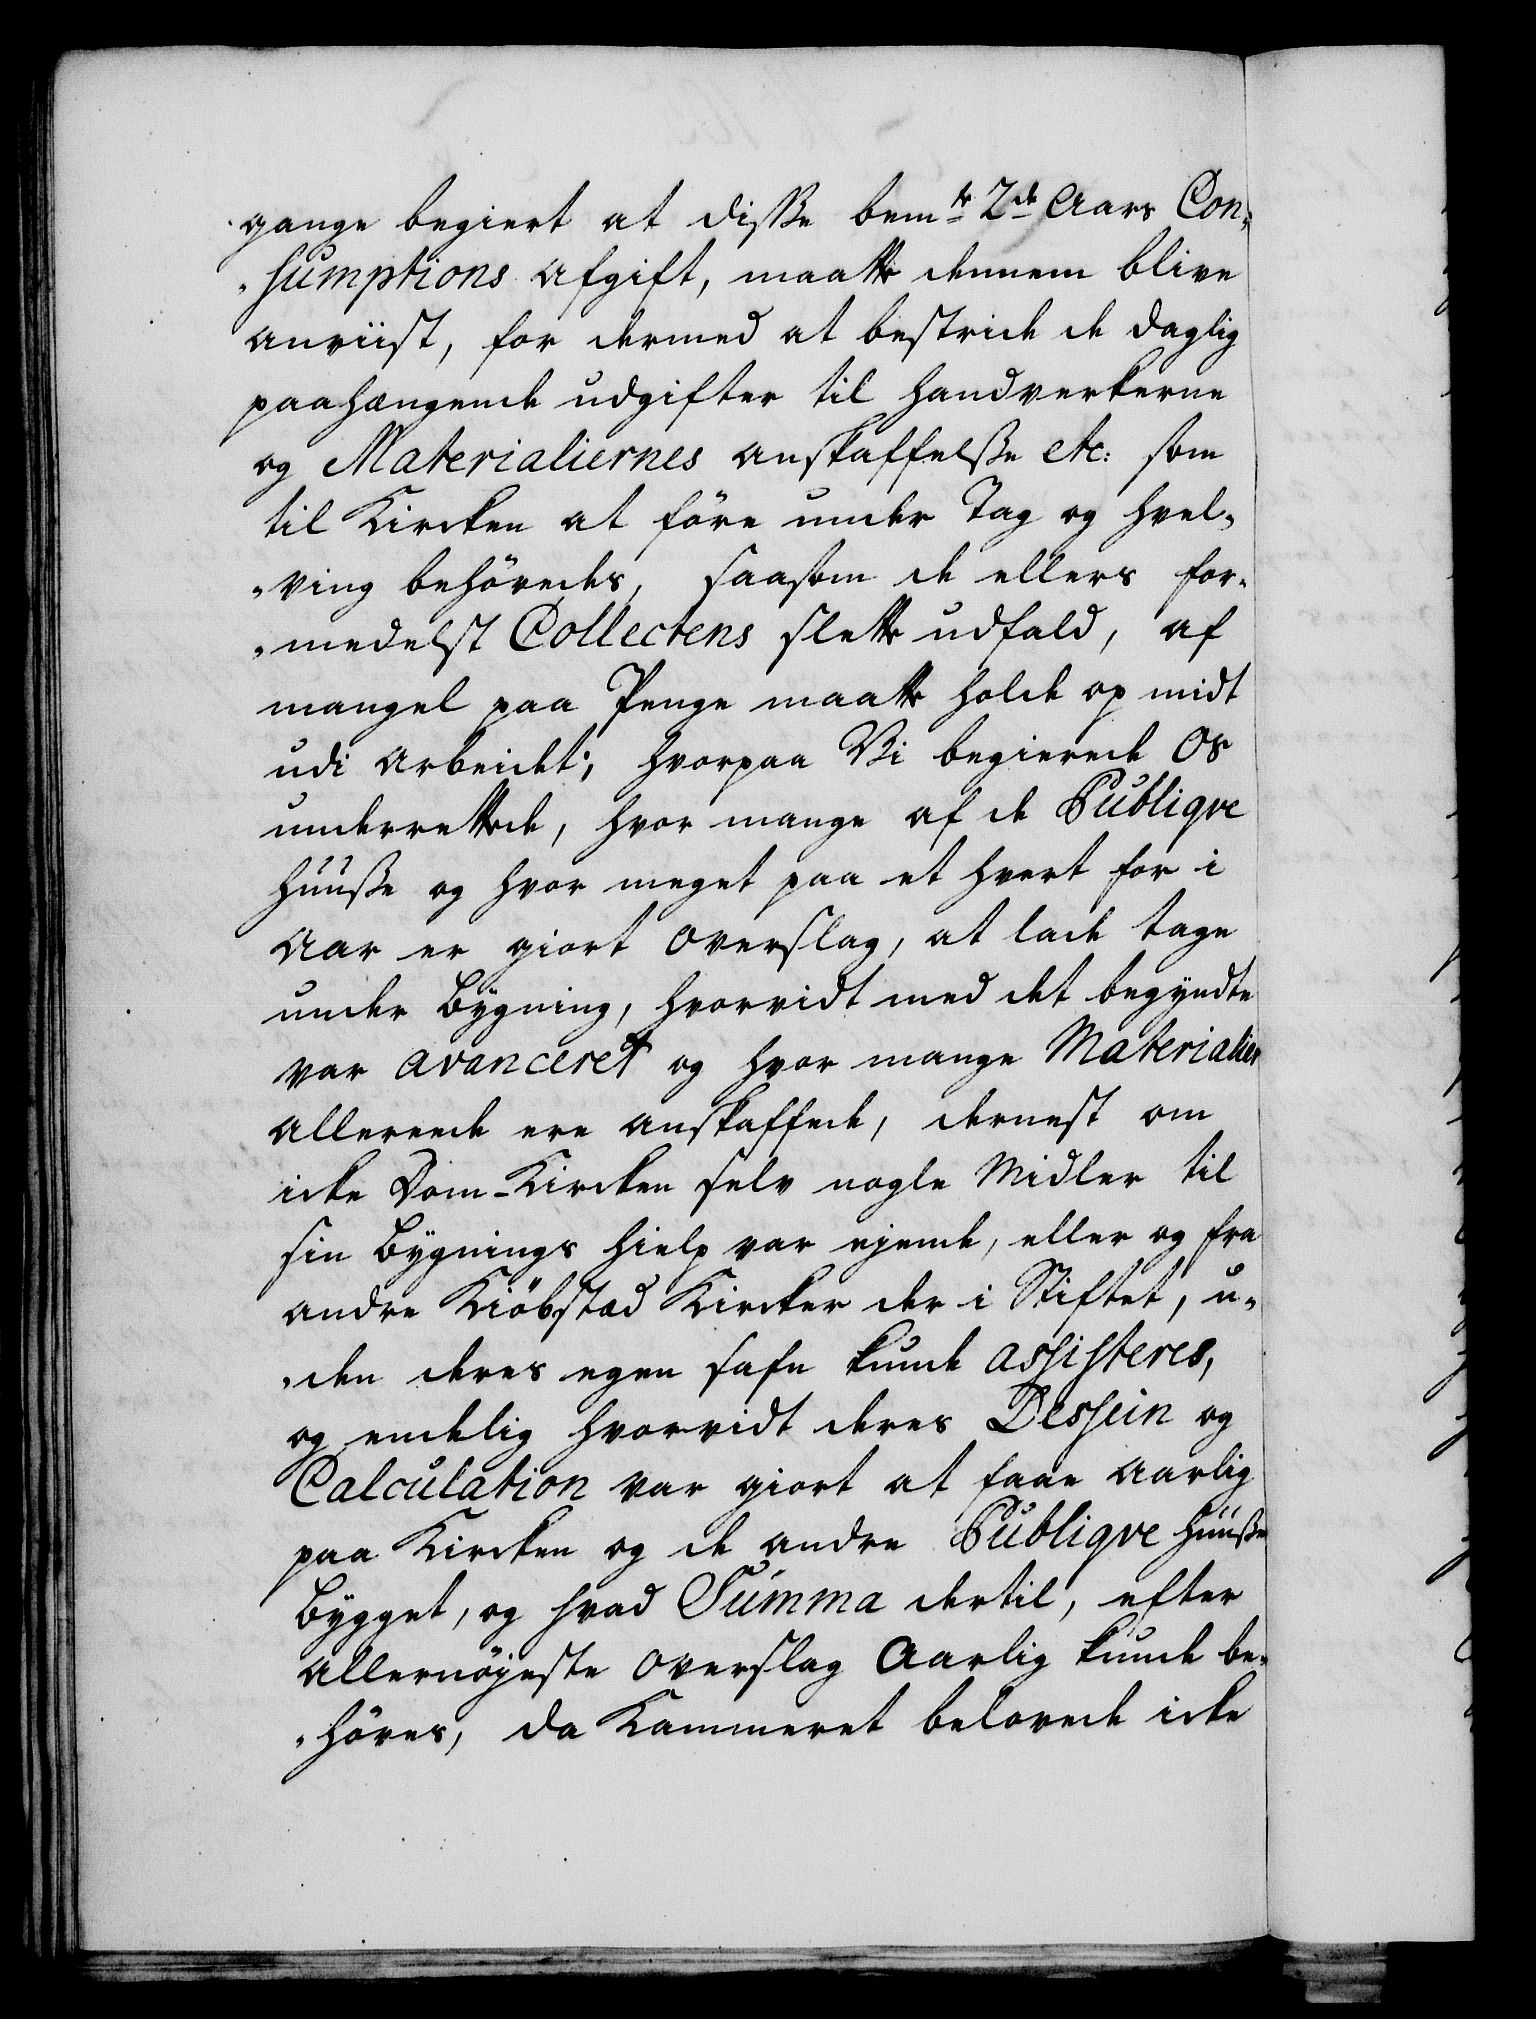 gange begiert at disse bem.te 2de Aars Con-
-sumptions Afgift, maatte dennem blive
anviist, for dermed at bestride de daglig
paahængende udgifter til Handverkerne
og Materialiernes anskaffelsse etc: som
til Kircken at före under Tag og Hvel-
-ving behövedes, saasom de ellers for-
-medelst Collectens slette udfald, af
mangel paa Penge maatte holde op midt
udi Arbeidet; hvorpaa Vi begierede Os
underrettede, hvor mange af de Publiqve
Huusse og hvor meget paa et hvert for i
Aar er giort Overslag, at lade tage
under Bygning, hvorvidt med det begyndte
var avanceret og hvor mange Materialier
allereede ere anskaffede, dernest om
icke Dom-Kircken selv nogle Midler til
sin Bygnings Hielp var ejende, eller og fra
andre Kiöbstæd Kircker der i Stiftet, u-
-den deres egen safn kunde assisteres,
og endelig hvorvidt deres Dessein og
Calculation var giort at faae aarlig
paa Kircken og de andre Publiqve Huusse
Bygget, og hvad Summa dertil, efter
allernöyeste Overslag Aarlig kunde be-
-höves, da Kammeret belovede icke